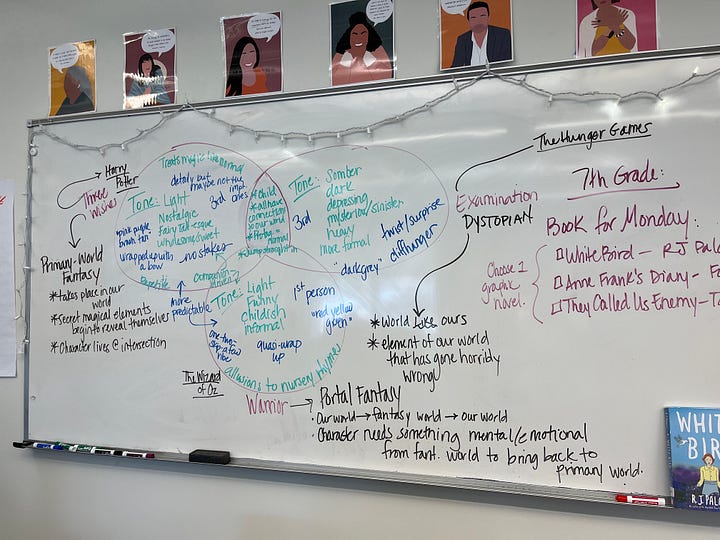 Harry
Potter
Three
Wishes
Primary-World
Fantasy
*takes place in our
world
*secret magical elements
begin to reveal themselves
*Character lives @ intersection
Treats magic like normal
details but
maybe not the
impt
ones
Tone: Light
Nostalgic
Fairy tale-esque
wholesome/sweet
3rd
*pink purple
brown tan*
wrapped up with
a bow
no stakes
Repetitive
more
predictable
*child
*all have
connection
to our world
normal
Tone: Somber
dark
depressing
mysterious/sinister
heavy
more formal
3rd
twist/surprise
cliffhanger
"dark grey"
Tone: Light
Funny
childish
informal
1st person
"red yellow
green"
one-two-
step-a-few
vibe
quasi-wrap
up
allusions to nursery rhymes
The Wizard
of Oz
Warrior → Portal Fantasy
· Our world → fantasy world → our world
· Character needs something mental/emotional
from fant. world to bring back to
primary world.
The Hunger Games
Examination
DYSTOPIAN
*World like ours
*element of our world
that has gone horribly
wrong
7th Grade:
Book for Monday:
Choose 1
graphic
novel.
□ White Bird – RJ Pala
□ Anne Frank's Diary – Fo
□ They Called Us Enemy – Ta
WHIT
BIR
R.J. PALA